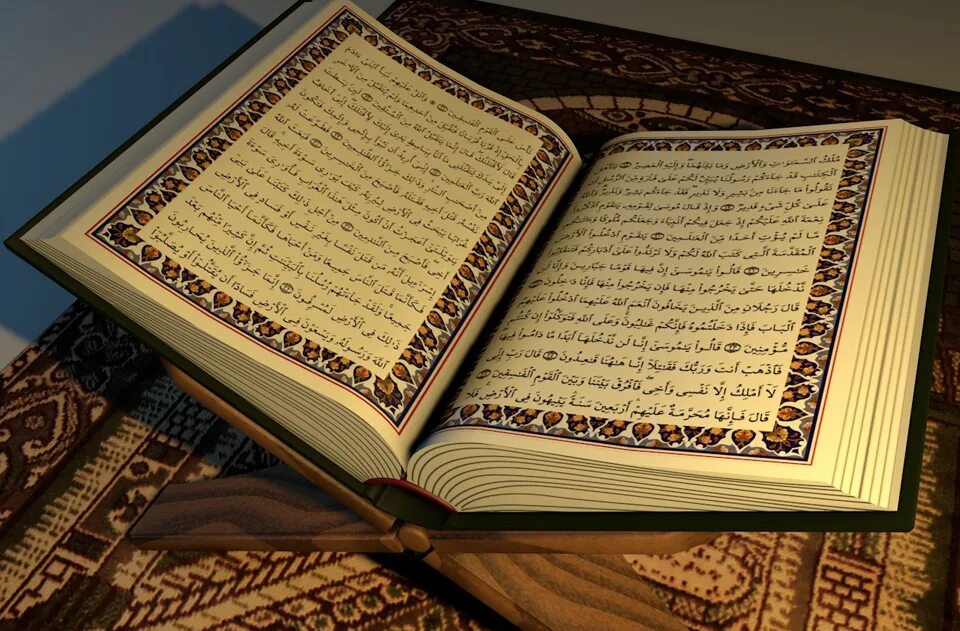 مُلْكُ السَّمَٰوَٰتِ وَالْأَرْضِ وَمَا بَيْنَهُمَا وَإِلَيْهِ الْمَصِيرُ ١٨
الْكِتَٰبِ قَدْ جَاءَكُمْ رَسُولُنَا يُبَيِّنُ لَكُمْ عَلَىٰ فَتْرَةٍ مِّنَ الرُّسُلِ أَن
تَقُولُوا مَا جَاءَنَا مِن بَشِيرٍ وَلَا نَذِيرٍ فَقَدْ جَاءَكُم بَشِيرٌ وَنَذِيرٌ
عَلَىٰ كُلِّ شَيْءٍ قَدِيرٌ ١٩ وَإِذْ قَالَ مُوسَىٰ لِقَوْمِهِ يَٰقَوْمِ اذْكُرُوا
نِعْمَةَ اللَّهِ عَلَيْكُمْ إِذْ جَعَلَ فِيكُمْ أَنبِيَاءَ وَجَعَلَكُم مُّلُوكًا وَءَاتَىٰكُم
مَّا لَمْ يُؤْتِ أَحَدًا مِّنَ الْعَٰلَمِينَ ٢٠ يَٰقَوْمِ ادْخُلُوا الْأَرْضَ
الْمُقَدَّسَةَ الَّتِي كَتَبَ اللَّهُ لَكُمْ وَلَا تَرْتَدُّوا عَلَىٰ أَدْبَارِكُمْ فَتَنقَلِبُوا
خَٰسِرِينَ ٢١ قَالُوا يَٰمُوسَىٰ إِنَّ فِيهَا قَوْمًا جَبَّارِينَ وَإِنَّا لَن
نَّدْخُلَهَا حَتَّىٰ يَخْرُجُوا مِنْهَا فَإِن يَخْرُجُوا مِنْهَا فَإِنَّا دَٰخِلُونَ ٢٢
قَالَ رَجُلَانِ مِنَ الَّذِينَ يَخَافُونَ أَنْعَمَ اللَّهُ عَلَيْهِمَا ادْخُلُوا عَلَيْهِمُ
الْبَابَ فَإِذَا دَخَلْتُمُوهُ فَإِنَّكُمْ غَٰلِبُونَ وَعَلَى اللَّهِ فَتَوَكَّلُوا إِن كُنتُم
مُّؤْمِنِينَ ٢٣ قَالُوا يَٰمُوسَىٰ إِنَّا لَن نَّدْخُلَهَا أَبَدًا مَّا دَامُوا فِيهَا
فَاذْهَبْ أَنتَ وَرَبُّكَ فَقَٰتِلَا إِنَّا هَٰهُنَا قَٰعِدُونَ ٢٤ قَالَ رَبِّ إِنِّي
لَا أَمْلِكُ إِلَّا نَفْسِي وَأَخِي فَافْرُقْ بَيْنَنَا وَبَيْنَ الْقَوْمِ الْفَٰسِقِينَ ٢٥
قَالَ فَإِنَّهَا مُحَرَّمَةٌ عَلَيْهِمْ أَرْبَعِينَ سَنَةً يَتِيهُونَ فِي الْأَرْضِ فَلَا
تَأْسَ عَلَى الْقَوْمِ الْفَٰسِقِينَ ٢٦ وَاتْلُ عَلَيْهِمْ نَبَأَ ابْنَيْ ءَادَمَ
بِالْحَقِّ إِذْ قَرَّبَا قُرْبَانًا فَتُقُبِّلَ مِنْ أَحَدِهِمَا وَلَمْ يُتَقَبَّلْ مِنَ الْآخَرِ
قَالَ لَأَقْتُلَنَّكَ قَالَ إِنَّمَا يَتَقَبَّلُ اللَّهُ مِنَ الْمُتَّقِينَ ٢٧ لَئِن بَسَطتَ
إِلَيَّ يَدَكَ لِتَقْتُلَنِي مَا أَنَا بِبَاسِطٍ يَدِيَ إِلَيْكَ لِأَقْتُلَكَ إِنِّي أَخَافُ
اللَّهَ رَبَّ الْعَٰلَمِينَ ٢٨ إِنِّي أُرِيدُ أَن تَبُوأَ بِإِثْمِي وَإِثْمِكَ فَتَكُونَ
مِنْ أَصْحَٰبِ النَّارِ وَذَٰلِكَ جَزَٰؤُا الظَّٰلِمِينَ ٢٩ فَطَوَّعَتْ لَهُ
نَفْسُهُ قَتْلَ أَخِيهِ فَقَتَلَهُ فَأَصْبَحَ مِنَ الْخَٰسِرِينَ ٣٠ فَبَعَثَ اللَّهُ
غُرَابًا يَبْحَثُ فِي الْأَرْضِ لِيُرِيَهُ كَيْفَ يُوَٰرِي سَوْءَةَ أَخِيهِ قَالَ
يَٰوَيْلَتَىٰ أَعَجَزْتُ أَنْ أَكُونَ مِثْلَ هَٰذَا الْغُرَابِ فَأُوَٰرِيَ سَوْءَةَ
أَخِي فَأَصْبَحَ مِنَ النَّٰدِمِينَ ٣١ مِنْ أَجْلِ ذَٰلِكَ كَتَبْنَا عَلَىٰ بَنِي
إِسْرَٰءِيلَ أَنَّهُ مَن قَتَلَ نَفْسًا بِغَيْرِ نَفْسٍ أَوْ فَسَادٍ فِي الْأَرْضِ
فَكَأَنَّمَا قَتَلَ النَّاسَ جَمِيعًا وَمَنْ أَحْيَاهَا فَكَأَنَّمَا أَحْيَا النَّاسَ
جَمِيعًا وَلَقَدْ جَاءَتْهُمْ رُسُلُنَا بِالْبَيِّنَٰتِ ثُمَّ إِنَّ كَثِيرًا مِّنْهُم بَعْدَ
ذَٰلِكَ فِي الْأَرْضِ لَمُسْرِفُونَ ٣٢ إِنَّمَا جَزَٰؤُا الَّذِينَ يُحَارِبُونَ
اللَّهَ وَرَسُولَهُ وَيَسْعَوْنَ فِي الْأَرْضِ فَسَادًا أَن يُقَتَّلُوا أَوْ يُصَلَّبُوا